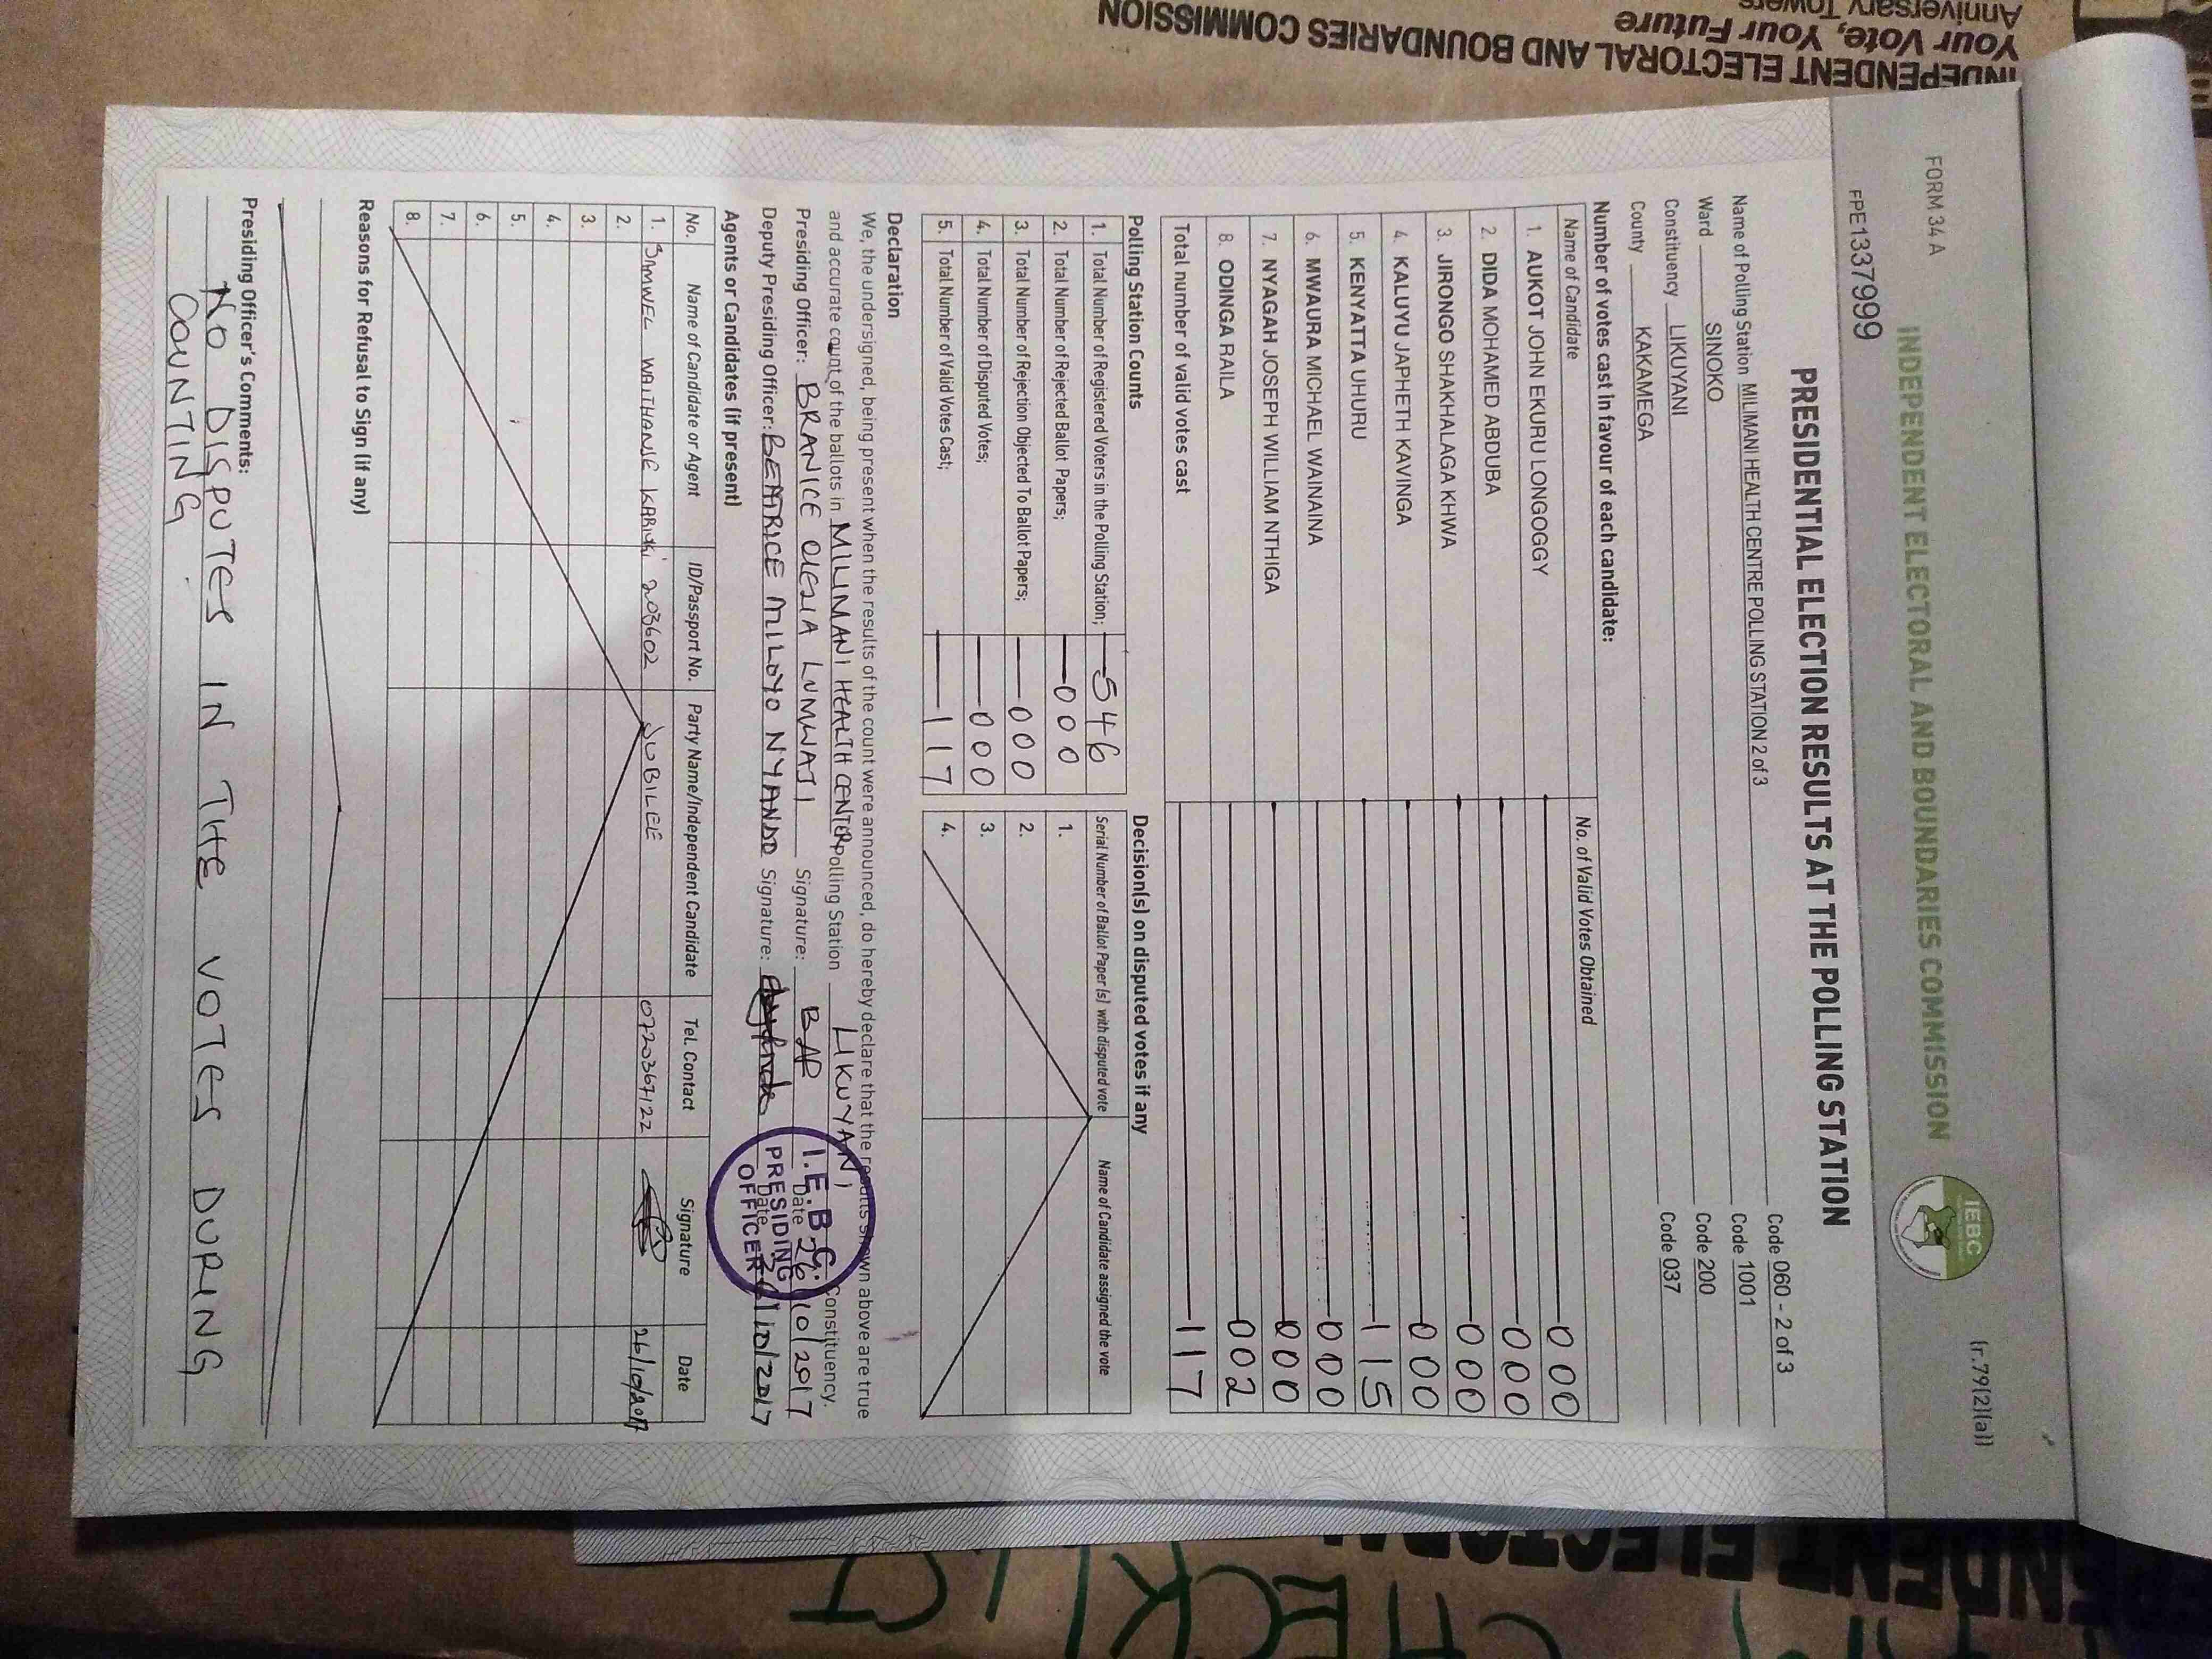 INDEPENDENT ELECTORAL AND BOUNDARIES COMMISSION
Your Vote, Your Future
Anniversary Towers
FORM 34 A
(r.79(2)(a))
INDEPENDENT ELECTORAL AND BOUNDARIES COMMISSION
IEBC
FPE1337999
PRESIDENTIAL ELECTION RESULTS AT THE POLLING STATION
Name of Polling Station MILIMANI HEALTH CENTRE POLLING STATION 2 of 3 Code 060 - 2 of 3
Ward SINOKO Code 1001
Constituency LIKUYANI Code 200
County KAKAMEGA Code 037
Number of votes cast in favour of each candidate:
Name of Candidate No. of Valid Votes Obtained
1. AUKOT JOHN EKURU LONGOGGY 000
2. DIDA MOHAMED ABDUBA 000
3. JIRONGO SHAKHALAGA KHWA 000
4. KALUYU JAPHETH KAVINGA 000
5. KENYATTA UHURU 115
6. MWAURA MICHAEL WAINAINA 000
7. NYAGAH JOSEPH WILLIAM NTHIGA 000
8. ODINGA RAILA 002
Total number of valid votes cast 117
Polling Station Counts
1. Total Number of Registered Voters in the Polling Station; 546
2. Total Number of Rejected Ballot Papers; 000
3. Total Number of Rejection Objected To Ballot Papers; 000
4. Total Number of Disputed Votes; 000
5. Total Number of Valid Votes Cast; 117
Decision(s) on disputed votes if any
Serial Number of Ballot Paper(s) with disputed vote Name of Candidate assigned the vote
1.
2.
3.
4.
Declaration
We, the undersigned, being present when the results of the count were announced, do hereby declare that the results shown above are true
and accurate count of the ballots in MILIMANI HEALTH CENTER Polling Station LIKUYANI Constituency.
Presiding Officer: BRANICE Signature: BAP Date 26/10/2017
Deputy Presiding Officer: BEATRICE MILOYO NYANDO Signature: Date 26/10/2017
I.E.B.C.
PRESIDING
OFFICER
Agents or Candidates (if present)
No. Name of Candidate or Agent ID/Passport No. Party Name/Independent Candidate Tel. Contact Signature Date
1. KARIUKI 203602 JUBILEE 0720367122 26/10/2017
2.
3.
4.
5.
6.
7.
8.
Reasons for Refusal to Sign (if any)
Presiding Officer's Comments:
NO DISPUTES IN THE VOTES DURING
COUNTING